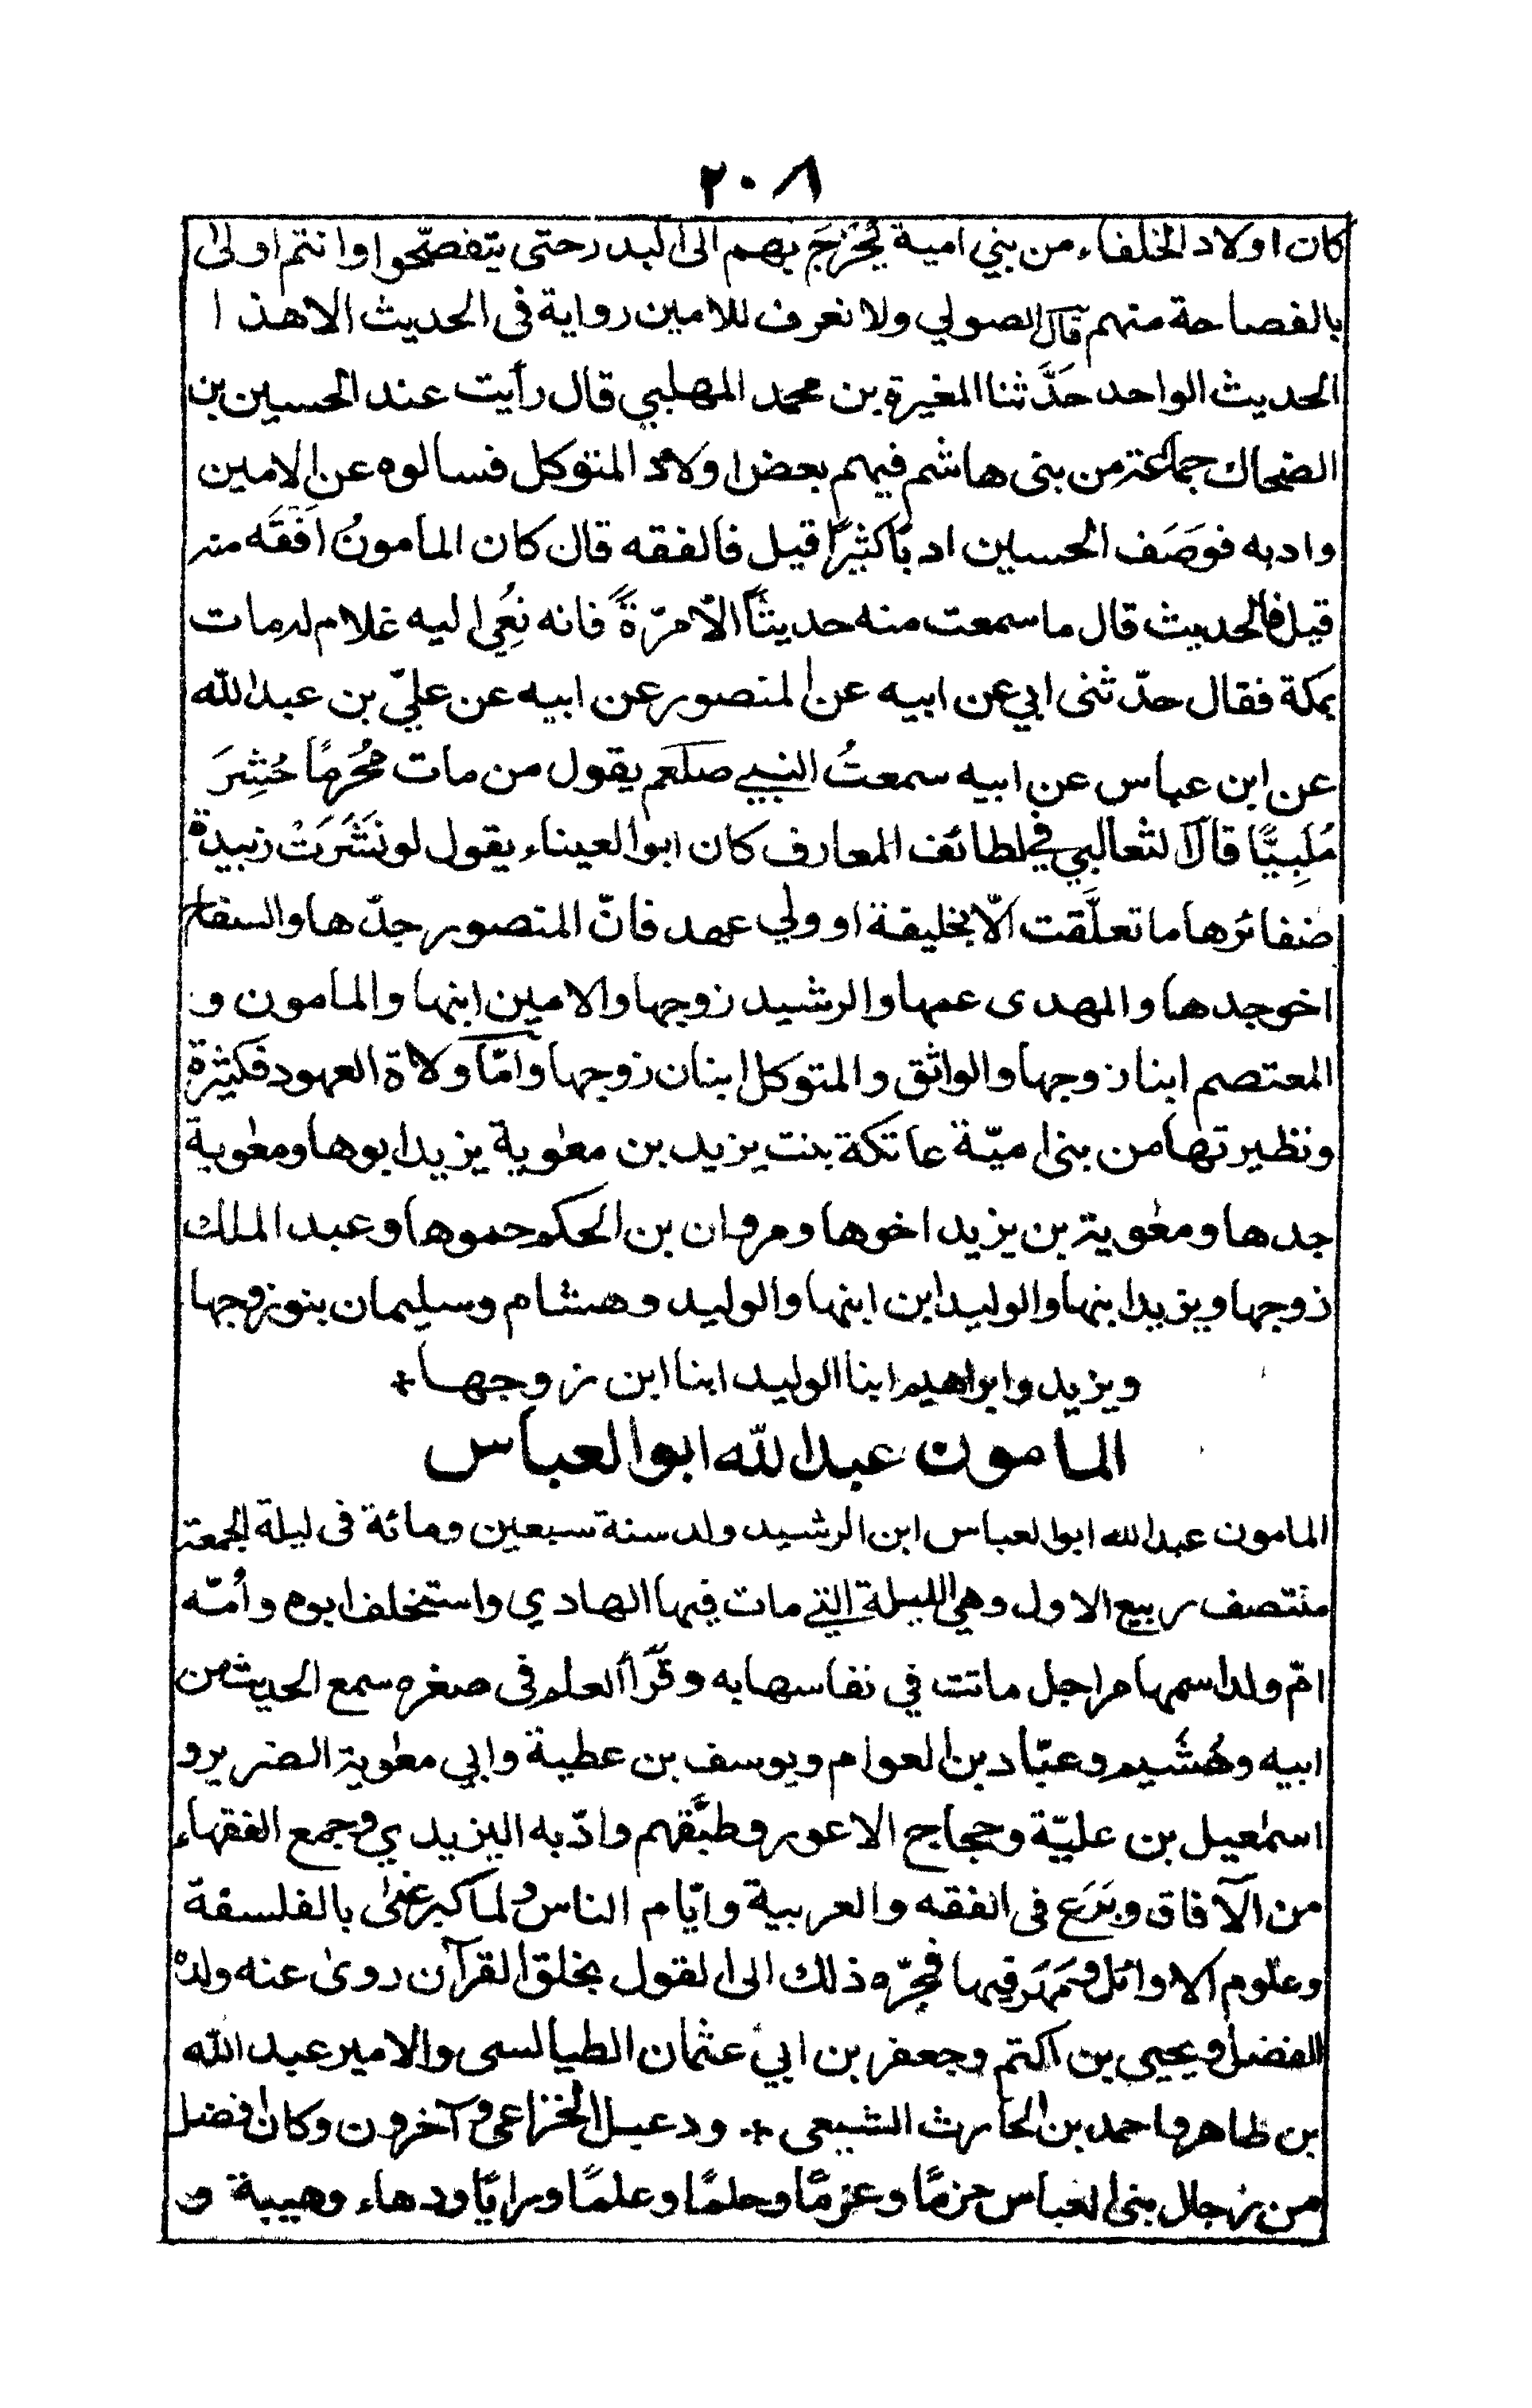 ٢٠٨
كان اولاد الخلفاء من بني امية يُخرَج بهم الى البدر حتى يتفصّحوا وانتم اولىٰ
بالفصاحة منهم قال الصولي ولا نعرف للامين رواية فى الحديث الا هذا
الحديث الواحد حَدَّثنا المغيرة بن محمد المهلبي قال رأيت عند الحسين بن
الضحاك جماعة من بنى هاشم فيهم بعض اولاد المتوكل فسالوه عن الامين
وادبه فوَصَف الحسين ادبًا كثيرًا قيل فالفقه قال كان المأمونُ افقَه منه
قيل فالحديث قال ما سمعت منه حديثًا الّا مرّةً فانه نُعِي اليه غلام له مات
بمكة فقال حدّثنى ابي عن ابيه عن المنصور عن ابيه عن عليّ بن عبد اللّه
عن ابن عباس عن ابيه سمعتُ النبي صلعم يقول من مات مُحْرِمًا حُشِرَ
مُلَبِيًّا قال الثعالبي في لطائف المعارف كان ابو العيناء يقول لو نَشَرَتْ زبيدة
ضفائرها ما تعلَّقت الّا بخليفة او ولي عهد فانّ المنصور جدّها والسفاح
اخو جدها والمهدى عمها والرشيد زوجها والامين ابنها والمامون و
المعتصم ابنا زوجها والواثق والمتوكل ابنان زوجها وامّا ولاة العهود فكثيرة
ونظيرتها من بنى اميّة عاتكة بنت يزيد بن معٰوية يزيد ابوها ومعٰوية
جدها ومعٰوية بن يزيد اخوها ومروان بن الحكم حموها وعبد الملك
زوجها ويزيد ابنها والوليد ابن ابنها والوليد وهشام وسليمان بنو زوجها
ويزيد وابراهيم ابنا الوليد ابنا ابن زوجها+
المامون عبد اللّه ابو العباس
المامون عبد الله ابو العباس ابن الرشيد ولد سنة سبعين ومائة فى ليلة الجمعة
منتصف ربيع الاول وهي الليلة التي مات فيها الهادي واستخلف ابوه وأمّه
امّ ولد اسمها مراجل ماتت في نفاسها به وقرَأ العلم فى صغره سمع الحديث من
ابيه وهُشَيم وعبّاد بن العوام ويوسف بن عطية وابي معٰوية الضرير و
اسمٰعيل بن عليّة وحجاج الاعور وطبَّقهم وادّبه اليزيدي وجمع الفقهاء
من الآفاق وبَرَع فى الفقه والعربية وايّام الناس ولما كبر عنى بالفلسفة
وعلوم الاوائل ومَهَر فيها فجرّه ذلك الى القول بخلق القرآن روىٰ عنه ولده
الفضل ويحيى بن اكتم وجعفر بن ابي عثمان الطيالسى والامير عبد اللّه
بن طاهر واحمد بن الحارث الشيعى + ودعبل الخزاعى وآخرون وكان افضل
من رجال بنى العباس حزمًا وعزمًا وحلمًا وعلمًا ورايًا ودهاء وهيبة و